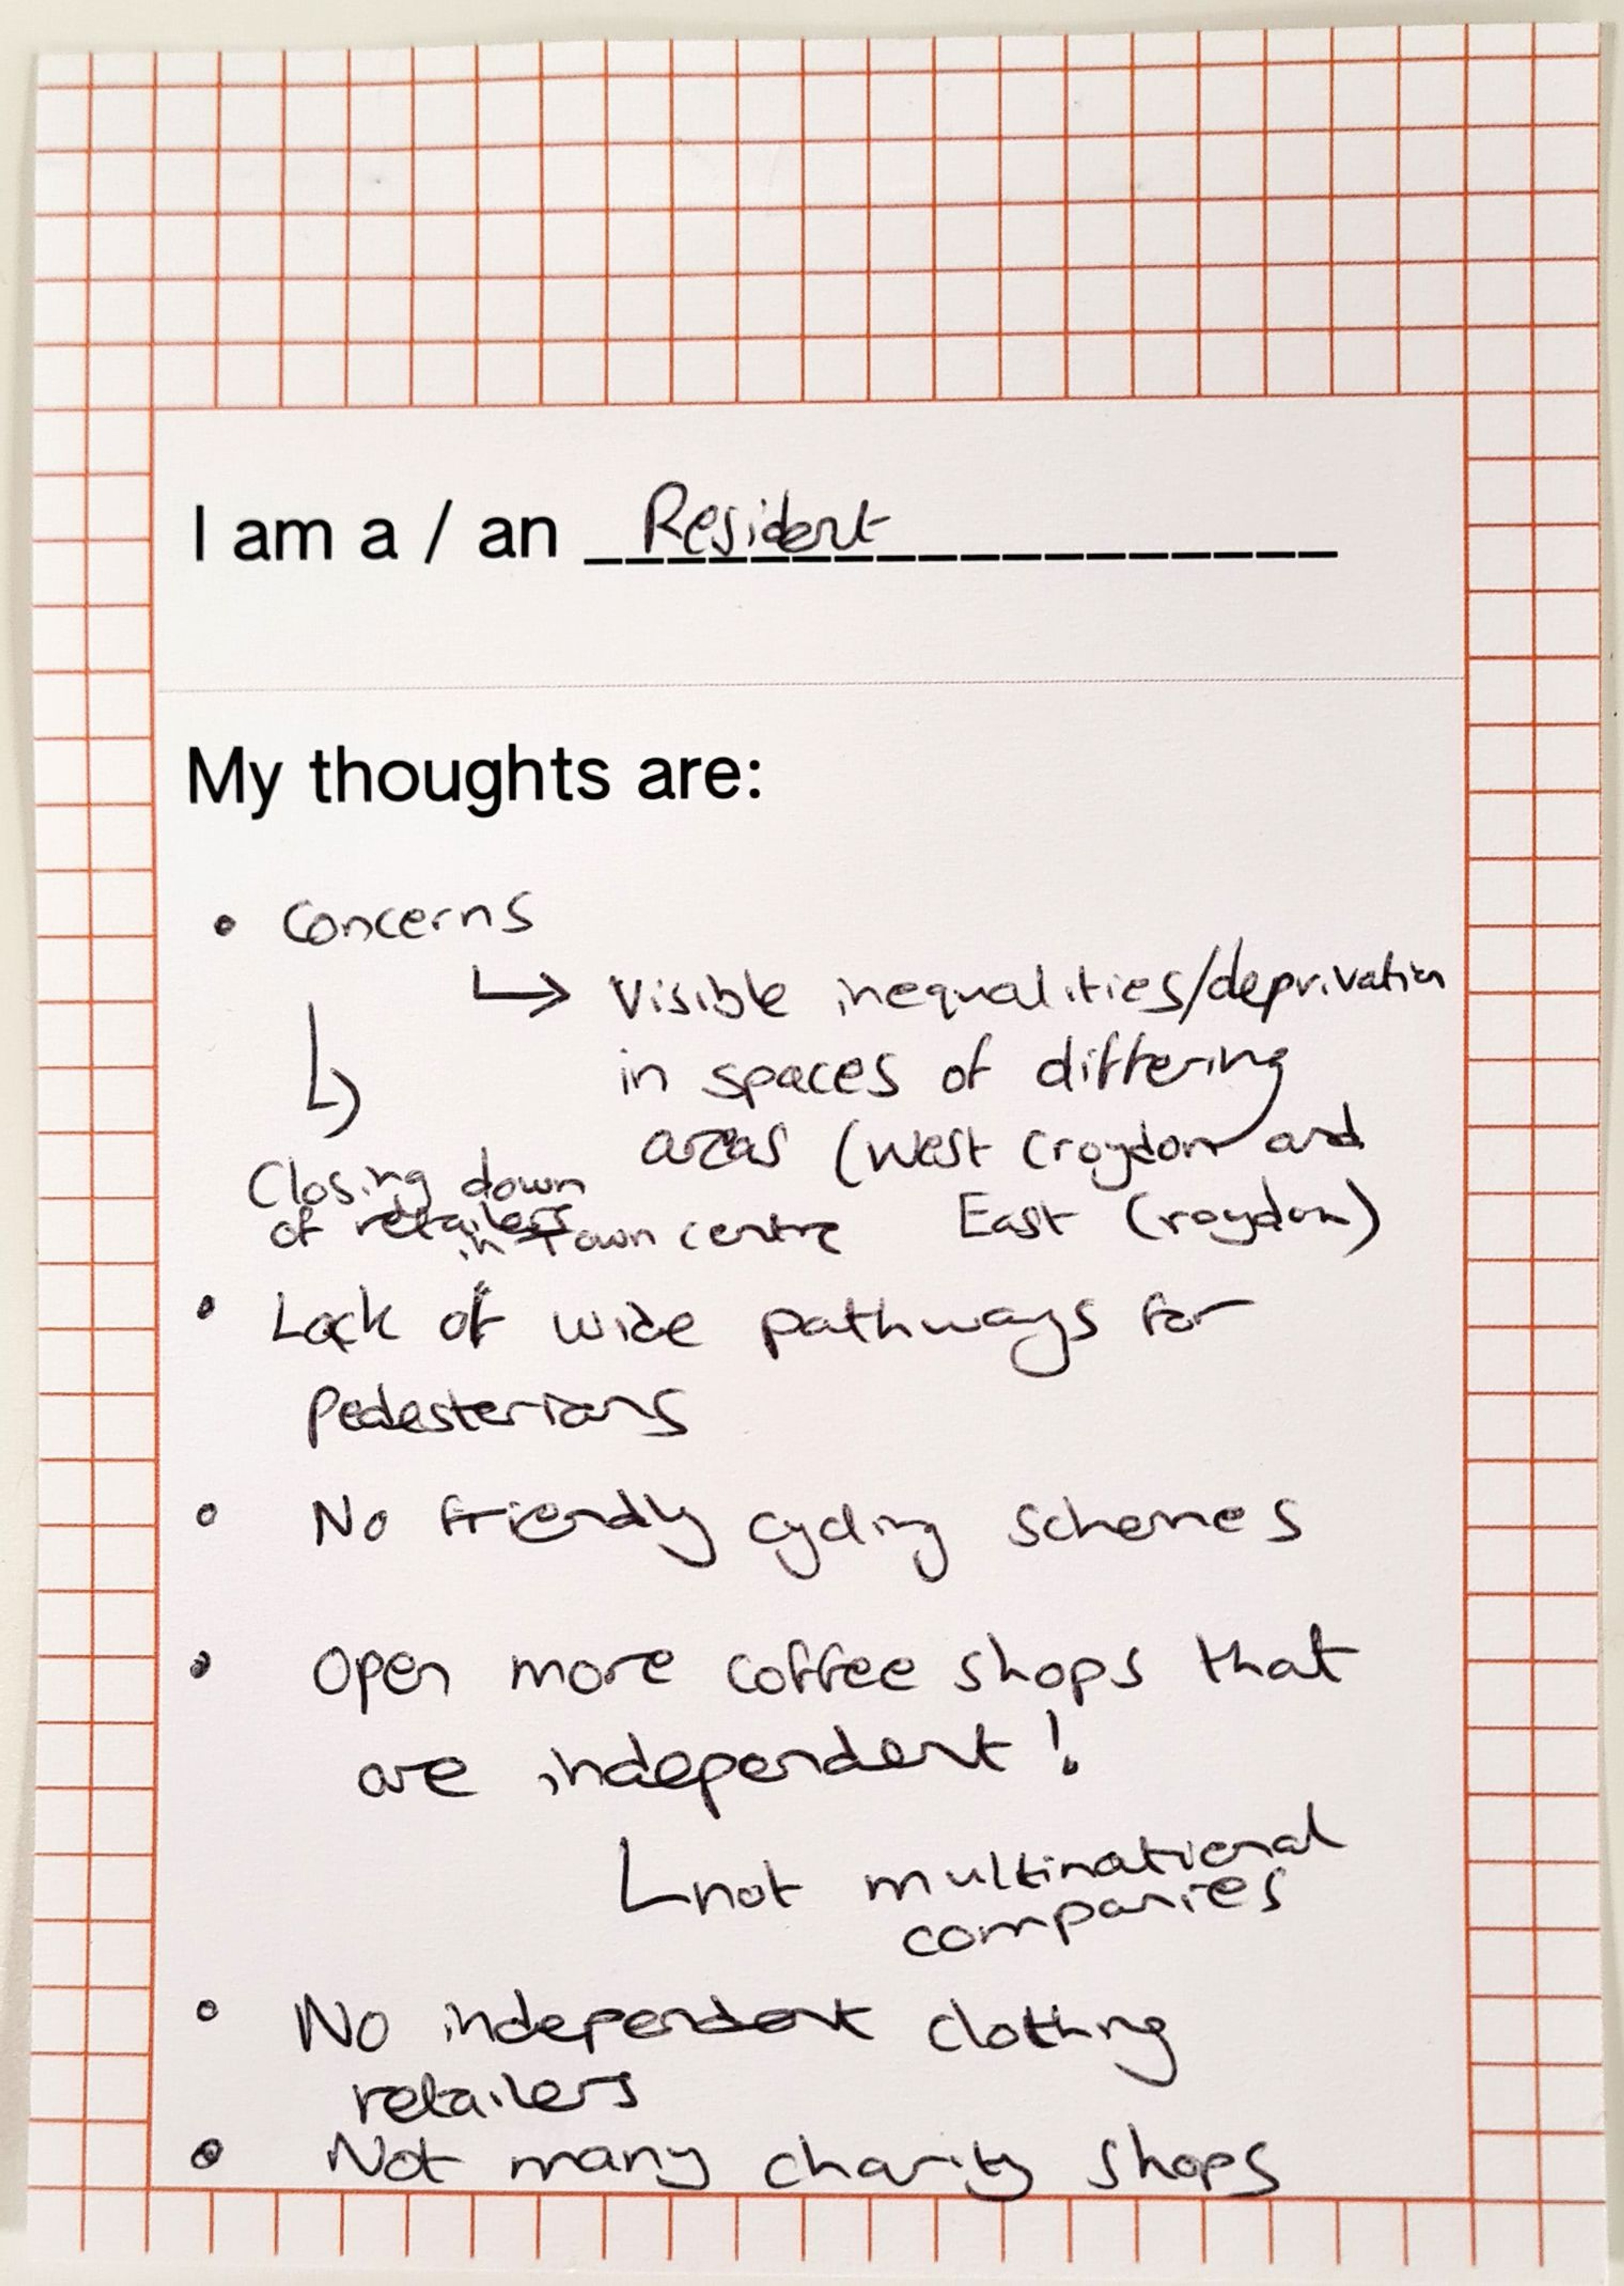 I am a / an Resident
My thoughts are:
• Concerns
↳ Visible inequalities/deprivation
in spaces of differing
areas (West Croydon and
East Croydon)
↳
Closing down
of retailers
in Town centre
• Lack of wide pathways for
pedesterians
• No friendly cycling schemes
• Open more coffee shops that
are independent!
not multinational
companies
• No independent clothing
retailers
• Not many charity shops